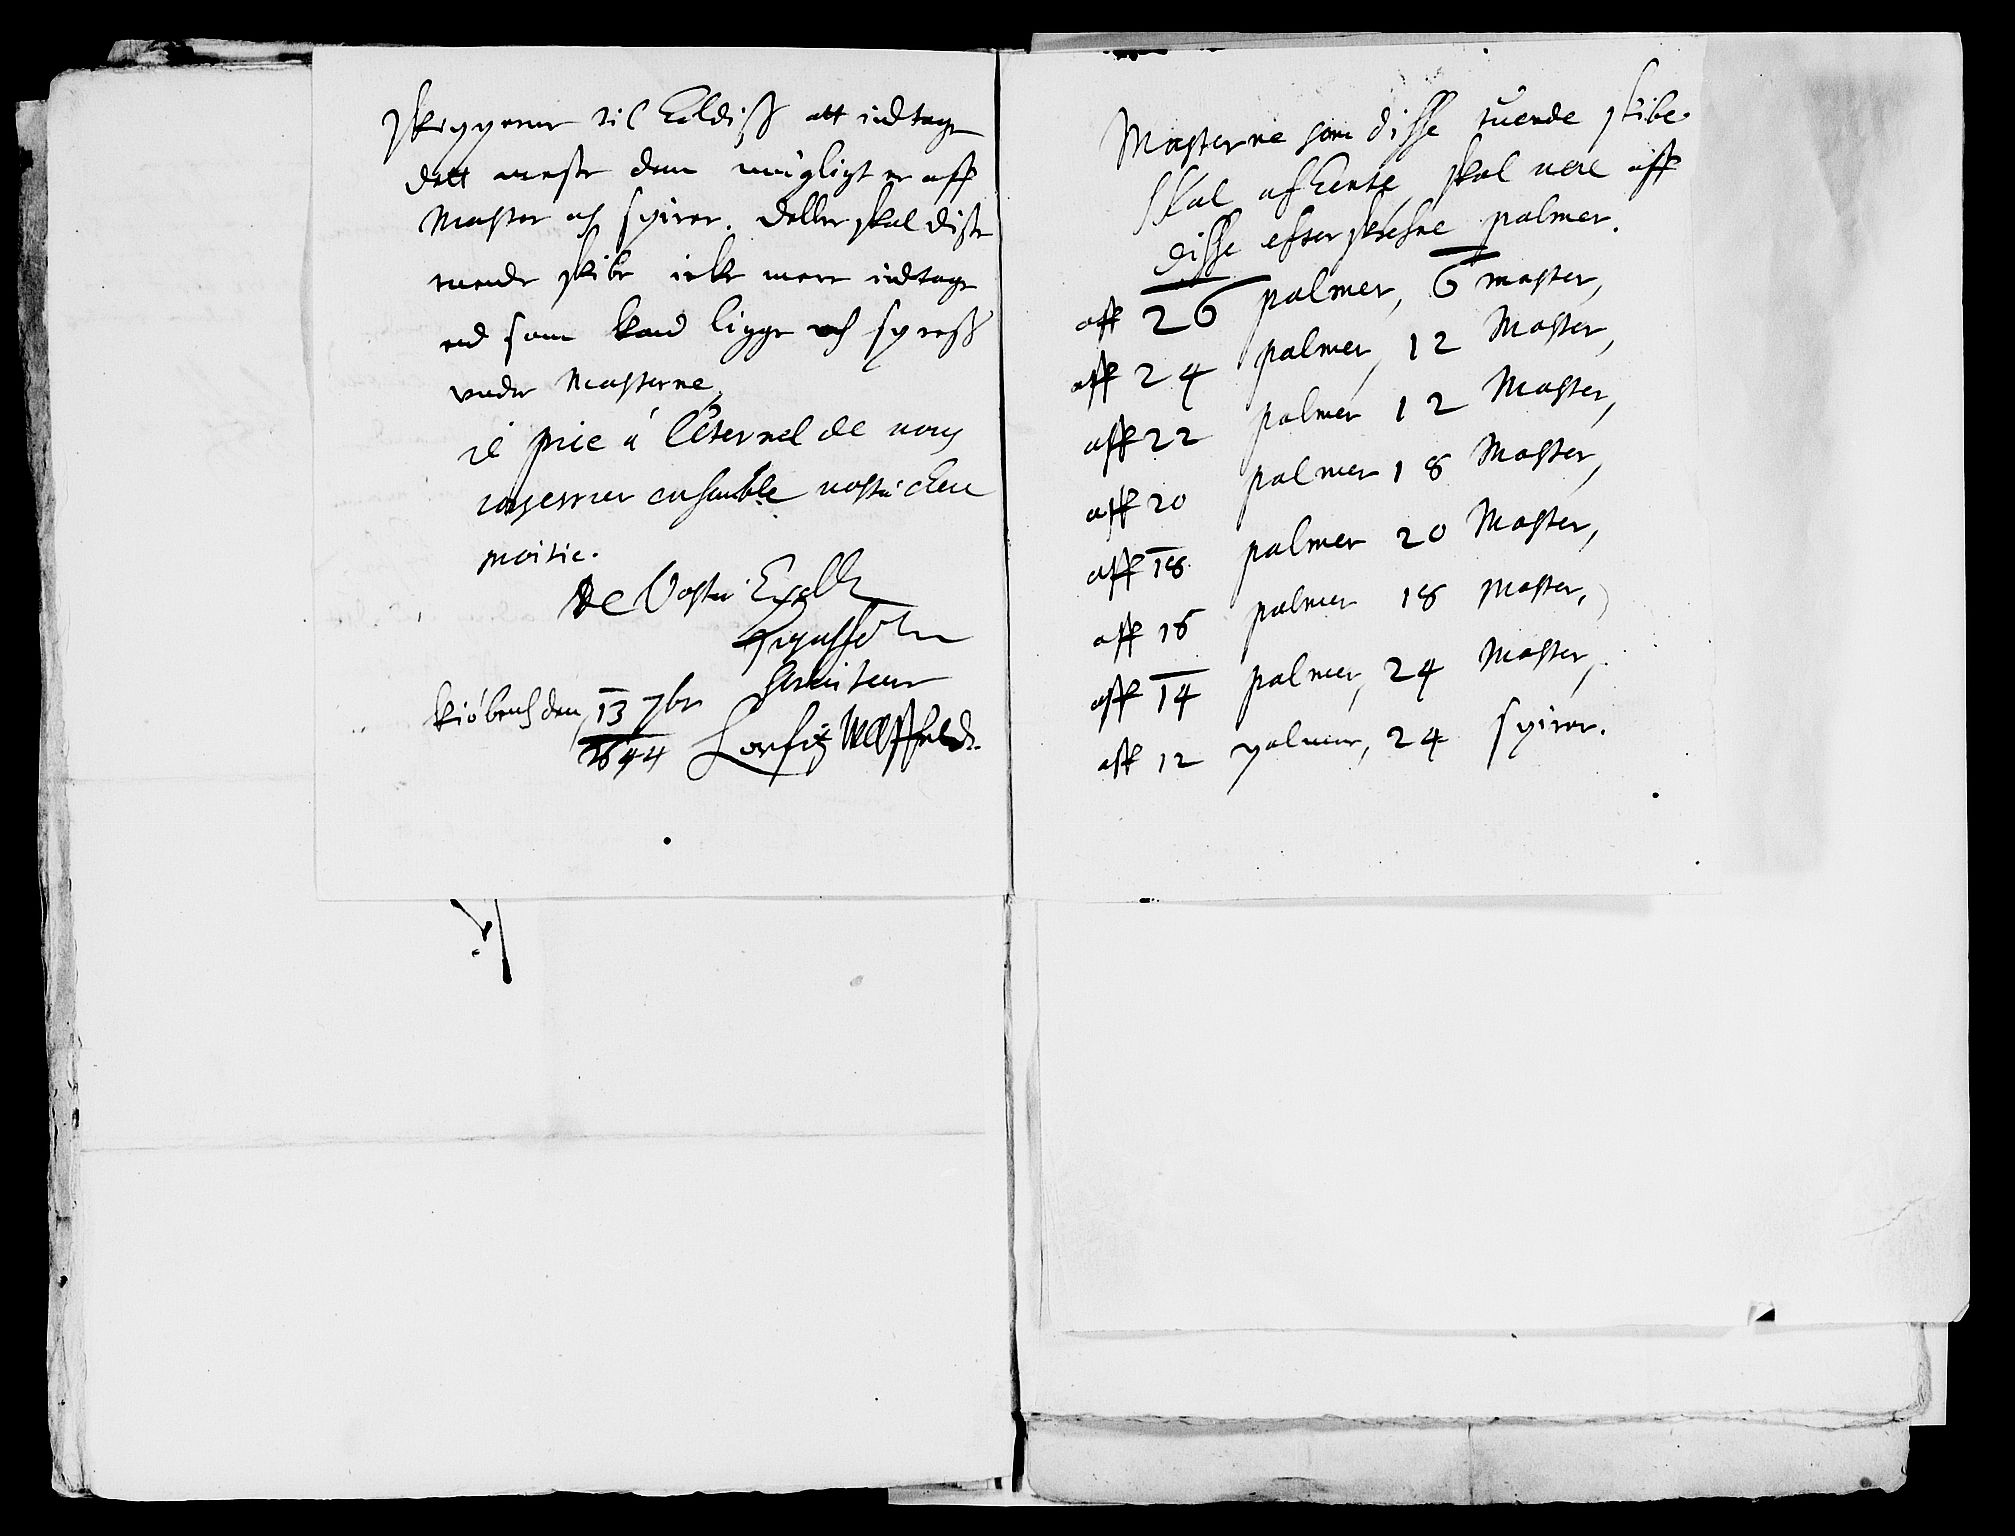 skipperne til Eeldiss att indtage
dett meste dem mügligt er aff
Master och spirer. deller skal disse
tuende skibe icke mere indtage
end som kand ligge och spress
vnder Masterne,
ie prie á l'éternel de vous
conserver ensemble vostre chere
moitie.
De Vostre Excell
Tres
serviteur
kiöbenh den 13 7br
1644 Corfitz Wlffeldt.
Masterne som disse tuende skibe
skal afhente, skal uere aff
disse efterskrefne palmer.
aff 26 palmer, 6 master,
aff 24 palmer, 12 Master,
aff 22 palmer 12 Master,
aff 20 palmer 18 Master,
aff 18 palmer 20 Master,
aff 16 palmer 18 Master,
aff 14 palmer, 24 Master,
aff 12 palmer, 24 spirer.